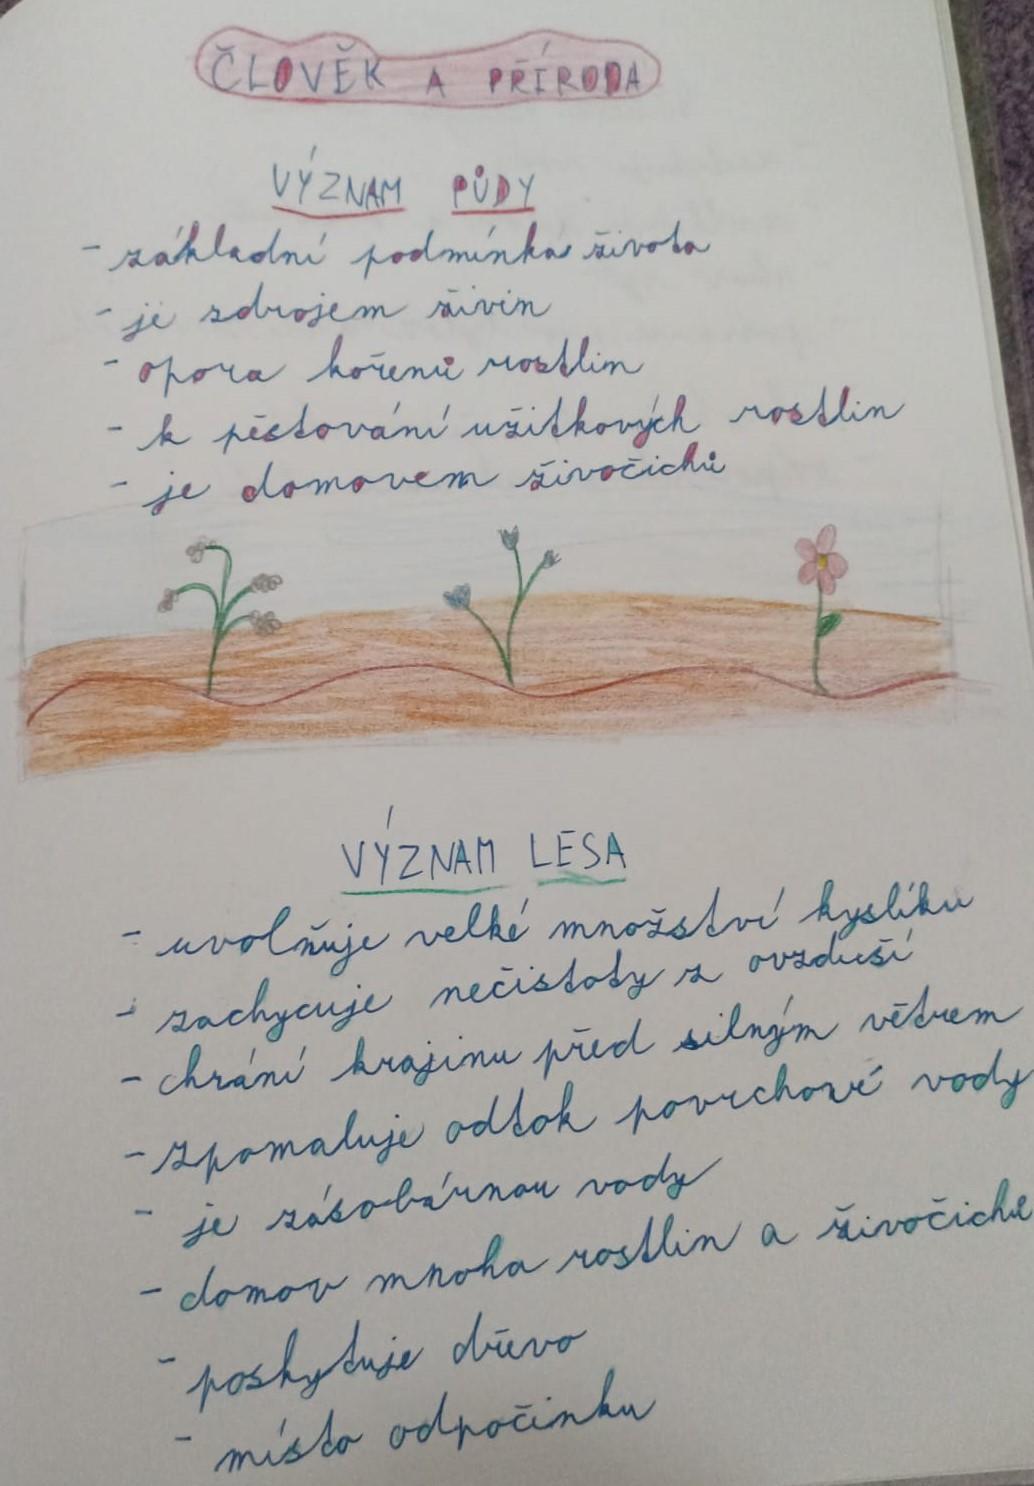 ČLOVĚK A PŘÍRODA
VÝZNAM PŮDY
- základní podmínka života
- je zdrojem živin
- opora kořenů rostlin
- k pěstování užitkových rostlin
- je domovem živočichů
VÝZNAM LESA
- uvolňuje velké množství kyslíku
- zachycuje nečistoty z ovzduší
- chrání krajinu před silným větrem
- zpomaluje odtok povrchové vody
- je zásobárnou vody
- domov mnoha rostlin a živočichů
- poskytuje dřevo
- místo odpočinku